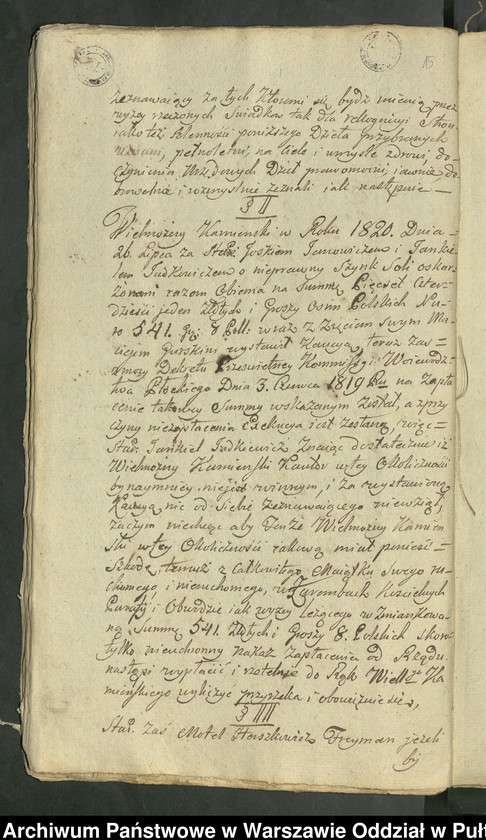 15
zeznawaiący za tych Któremi się bydź mienią, przez
wyżey rzeczonych Świadków tak dla rekognicyi Stron
iako też Solenności poniższego Dzieła przybranych
uznani, pełnoletni, na Ciele i umyśle zdrowi, do
czynienia Urzędowych Dzieł prawomocni, iawnie do
browolnie i rozmyślnie zeznali iak następuie =
§ II
Wielmożny Kamienski w Roku 1820. Dnia =
26. Lipca za Star: Joskiem i Janke
lem Judkiewiczem o nieprawny Szynk Soli oskar
żonemi razem Obiema na Summę Pięćset Czter
dzieści jeden Złotych i Groszy Osim Polskich Nu
ro 541. gr: 8 Pol: wraz z Zięciem Swym Ma
ciejem Gurskim wystawił Kaucyą, teraz zaś =
z mocy Dekretu Prześwietney Kommissyi Woiewodz=
twa Płockiego Dnia 3. Czerwca 1819 Ru na Zapła
cenie takowey Summy wskazanym Został, a z przy
czyny niezapłacenia Exekucya iest Zesłaną, więc =
Star: Jankiel Judkiewicz Znaiąc dostatecznie iż
Wielmożny Kamieński w tey Okoliczności
bynaymniey niejest winnym, i Za wystawioną
Kaucyą nic od Siebie Zeznawaiącego niewziął,
zaczym niechcąc aby Tenże Wielmożny Kamień
ski w tey Okoliczności iakową miał ponieść =
Szkodę, z Całkowitego Maiątku Swego ru
chomego i nieruchomego, w Zarembach Kościelnych
Parafij i Obwodzie iak wyżey Leżącego w Zmiankowa
ną Summę 541. Złotych i Groszy 8. Polskich skoro
tylko nieuchronny nakaz Zapłacenia od Rządu
nastąpi wypłacić i rzetelnie do Rąk Wiel: Ka
mieńskiego wyliczyć przyrzeka i obowiązuie się,
§ III
Star: zaś Motel Herszkowicz Freyman jeżeli
by
Archiwum Państwowe w Warszawie Oddział w Puł